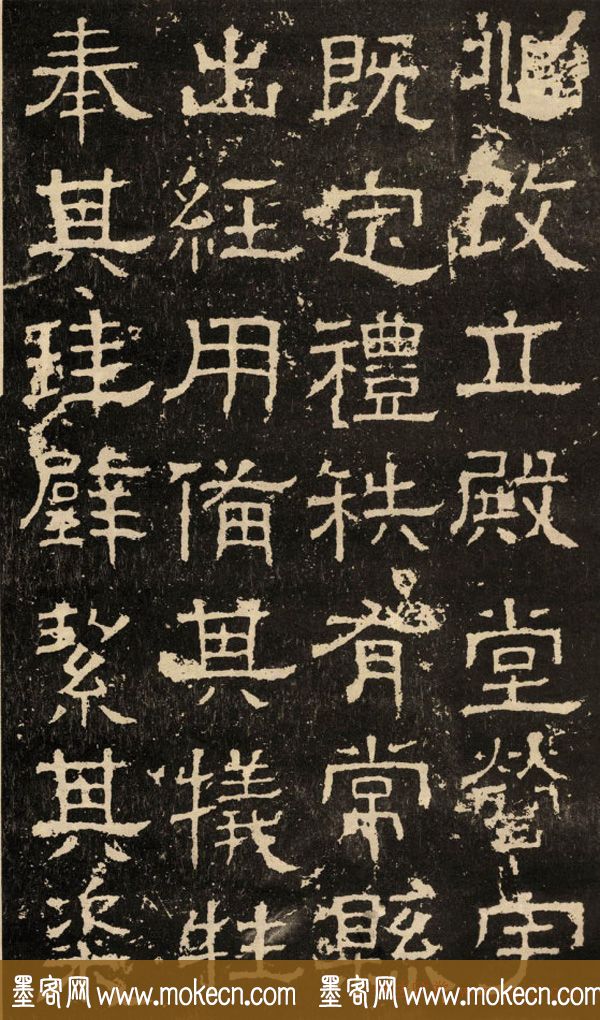 兆改立殿堂營宇
既定禮秩有常縣
出經用備其犧牲
奉其珪璧絜其粢
墨客网 www.mokecn.com 墨客网 www.mokecn.com